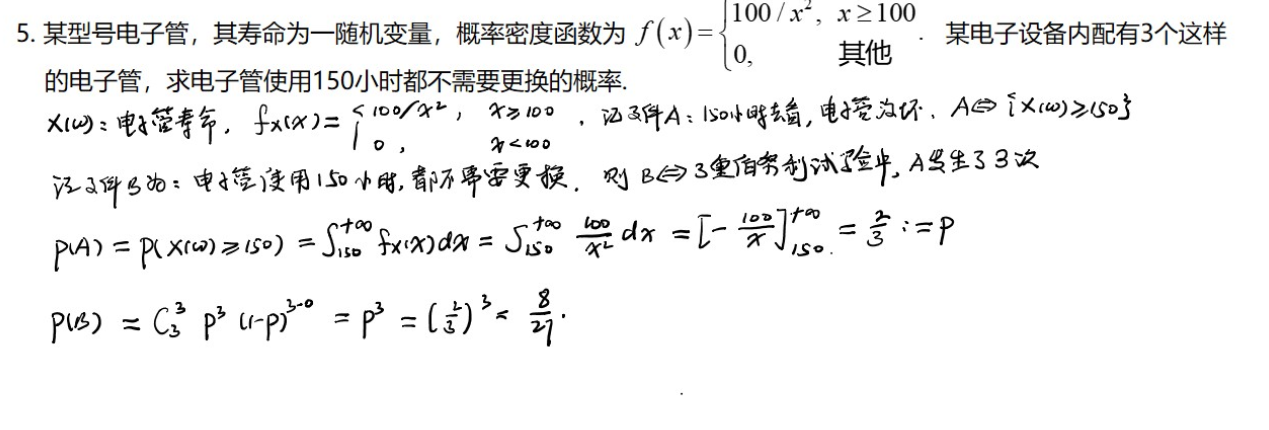 5. 某型号电子管，其寿命为一随机变量，概率密度函数为 f(x)={100/x², x≥100; 0, 其他. 某电子设备内配有3个这样
的电子管，求电子管使用150小时都不需要更换的概率.
X(ω)：电子管寿命，fx(x)={100/x², x≥100; 0, x<100. 记事件A：150小时去看，电子管没坏. A⇔{X(ω)≥150}
记事件B为：电子管使用150小时，都不需要更换. 则B⇔3重伯努利试验中，A发生了3次
P(A) = P(X(ω)≥150) = ∫₁₅₀^{+∞} fx(x)dx = ∫₁₅₀^{+∞} 100/x² dx = [-100/x]₁₅₀^{+∞} = 2/3 := P
P(B) = C₃³ p³ (1-p)^{3-0} = p³ = (2/3)³ = 8/27.